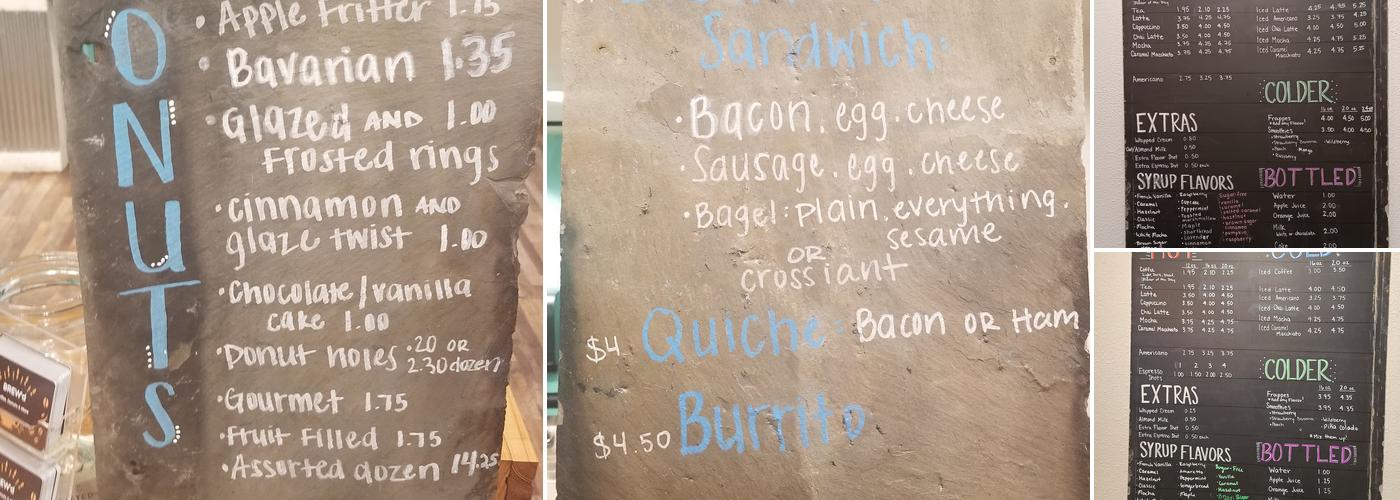 DONUTS
• Apple Fritter 1.75
• Bavarian 1.35
• Glazed AND 1.00
Frosted rings
• cinnamon AND
glaze twist 1.00
• Chocolate/vanilla
cake 1.00
• Donut holes •.20 OR
2.30 dozen
• Gourmet 1.75
• Fruit Filled 1.75
• Assorted dozen 14.25
BREW'd
Sandwich:
• Bacon, egg, cheese
• Sausage, egg, cheese
• Bagel: plain, everything,
sesame
OR
crossiant
$4 Quiche Bacon OR Ham
$4.50 Burrito
Tea 1.95 2.10 2.25
Latte 3.75 4.25 4.75
Cappuccino 3.50 4.00 4.50
Chai Latte 3.50 4.00 4.50
Mocha 3.75 4.25 4.75
Caramel Macchiato 3.75 4.25 4.75
Americano 2.75 3.25 3.75
EXTRAS
Whipped Cream
Almond Milk 0.50
Extra Flavor Shot 0.50
Extra Espresso Shot 0.50 each
SYRUP FLAVORS
• French Vanilla
• Caramel
• Hazelnut
• Classic
• Mocha
White Mocha
• Brown Sugar
• Raspberry
• Cupcake
• Peppermint
• Toasted
marshmallow
• Maple
• shortbread
• Lavender
• cinnamon
Sugar-Free
• vanilla
• caramel
• salted caramel
• hazelnut
• brown sugar
• cinnamon
• pumpkin
• raspberry
Iced Latte 4.25 4.75 5.25
Iced Americano 3.25 3.75 4.25
Iced Chai Latte 4.00 4.50 5.00
Iced Mocha 4.25 4.75 5.25
Iced Caramel 4.25 4.75 5.25
Macchiato
COLDER
16 oz 20 oz 24 oz
Frappes 4.00 4.50 5.00
• Add any Flavor!
Smoothies 3.50 4.00 4.50
• Strawberry
• Strawberry Banana • Wildberry
• Peach • Mango
• Raspberry
BOTTLED
Water 1.00
Apple Juice 2.00
Orange Juice 2.00
Milk
White or chocolate 2.00
Coke 2.00
HOT
12 oz 16 oz 20 oz
Coffee 1.95 2.10 2.25
Tea 1.95 2.10 2.25
Latte 3.50 4.00 4.50
Cappuccino 3.50 4.00 4.50
Chai Latte 3.50 4.00 4.50
Mocha 3.75 4.25 4.75
Caramel Macchiato 3.75 4.25 4.75
Americano 2.75 3.25 3.75
1 2 3 4
Espresso 1.00 1.50 2.00 2.50
Shots
EXTRAS
Whipped Cream 0.25
Almond Milk 0.50
Extra Flavor Shot 0.50
Extra Espresso Shot 0.50 each
SYRUP FLAVORS
• French Vanilla
• Caramel
• Hazelnut
• Classic
• Raspberry
• Amaretto
• Peppermint
• Gingerbread
• Maple
Sugar-Free
• Vanilla
• Caramel
• Hazelnut
• Brown Sugar
COLD
16 oz 20 oz
Iced Coffee 3.00 3.50
Iced Latte 4.00 4.50
Iced Americano 3.25 3.75
Iced Chai Latte 4.00 4.50
Iced Mocha 4.25 4.75
Iced Caramel 4.25 4.75
Macchiato
COLDER
16 oz 20 oz
Frappes 3.95 4.35
• Add any Flavor!
Smoothies 3.95 4.35
• Strawberry
• Strawberry Banana • Wildberry
• Peach • Piña Colada
* Mix them up!
BOTTLED
Water 1.00
Apple Juice 1.25
Orange Juice 1.25